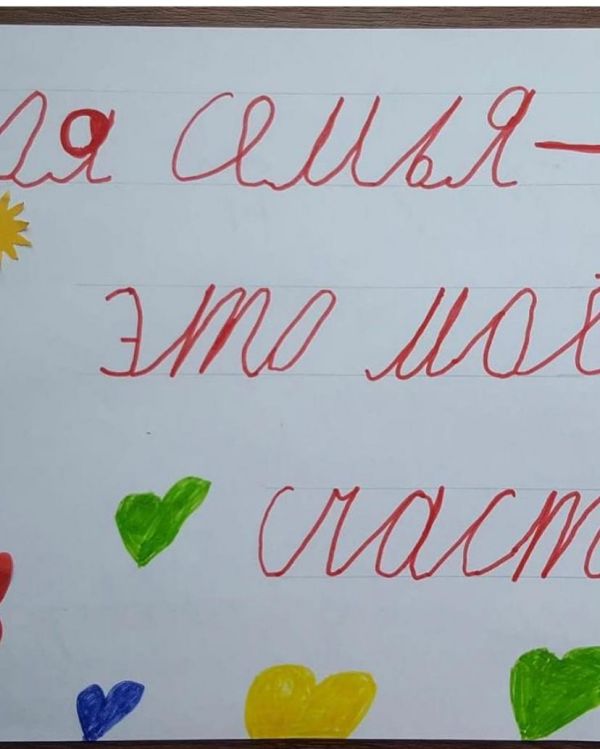 ая семья —
это моё
счаст